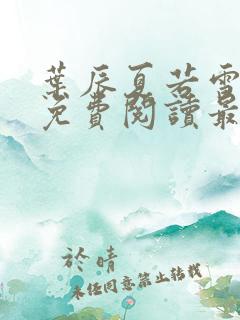 葉辰夏若雪
免費閱讀最
於晴
未经同意禁止转载